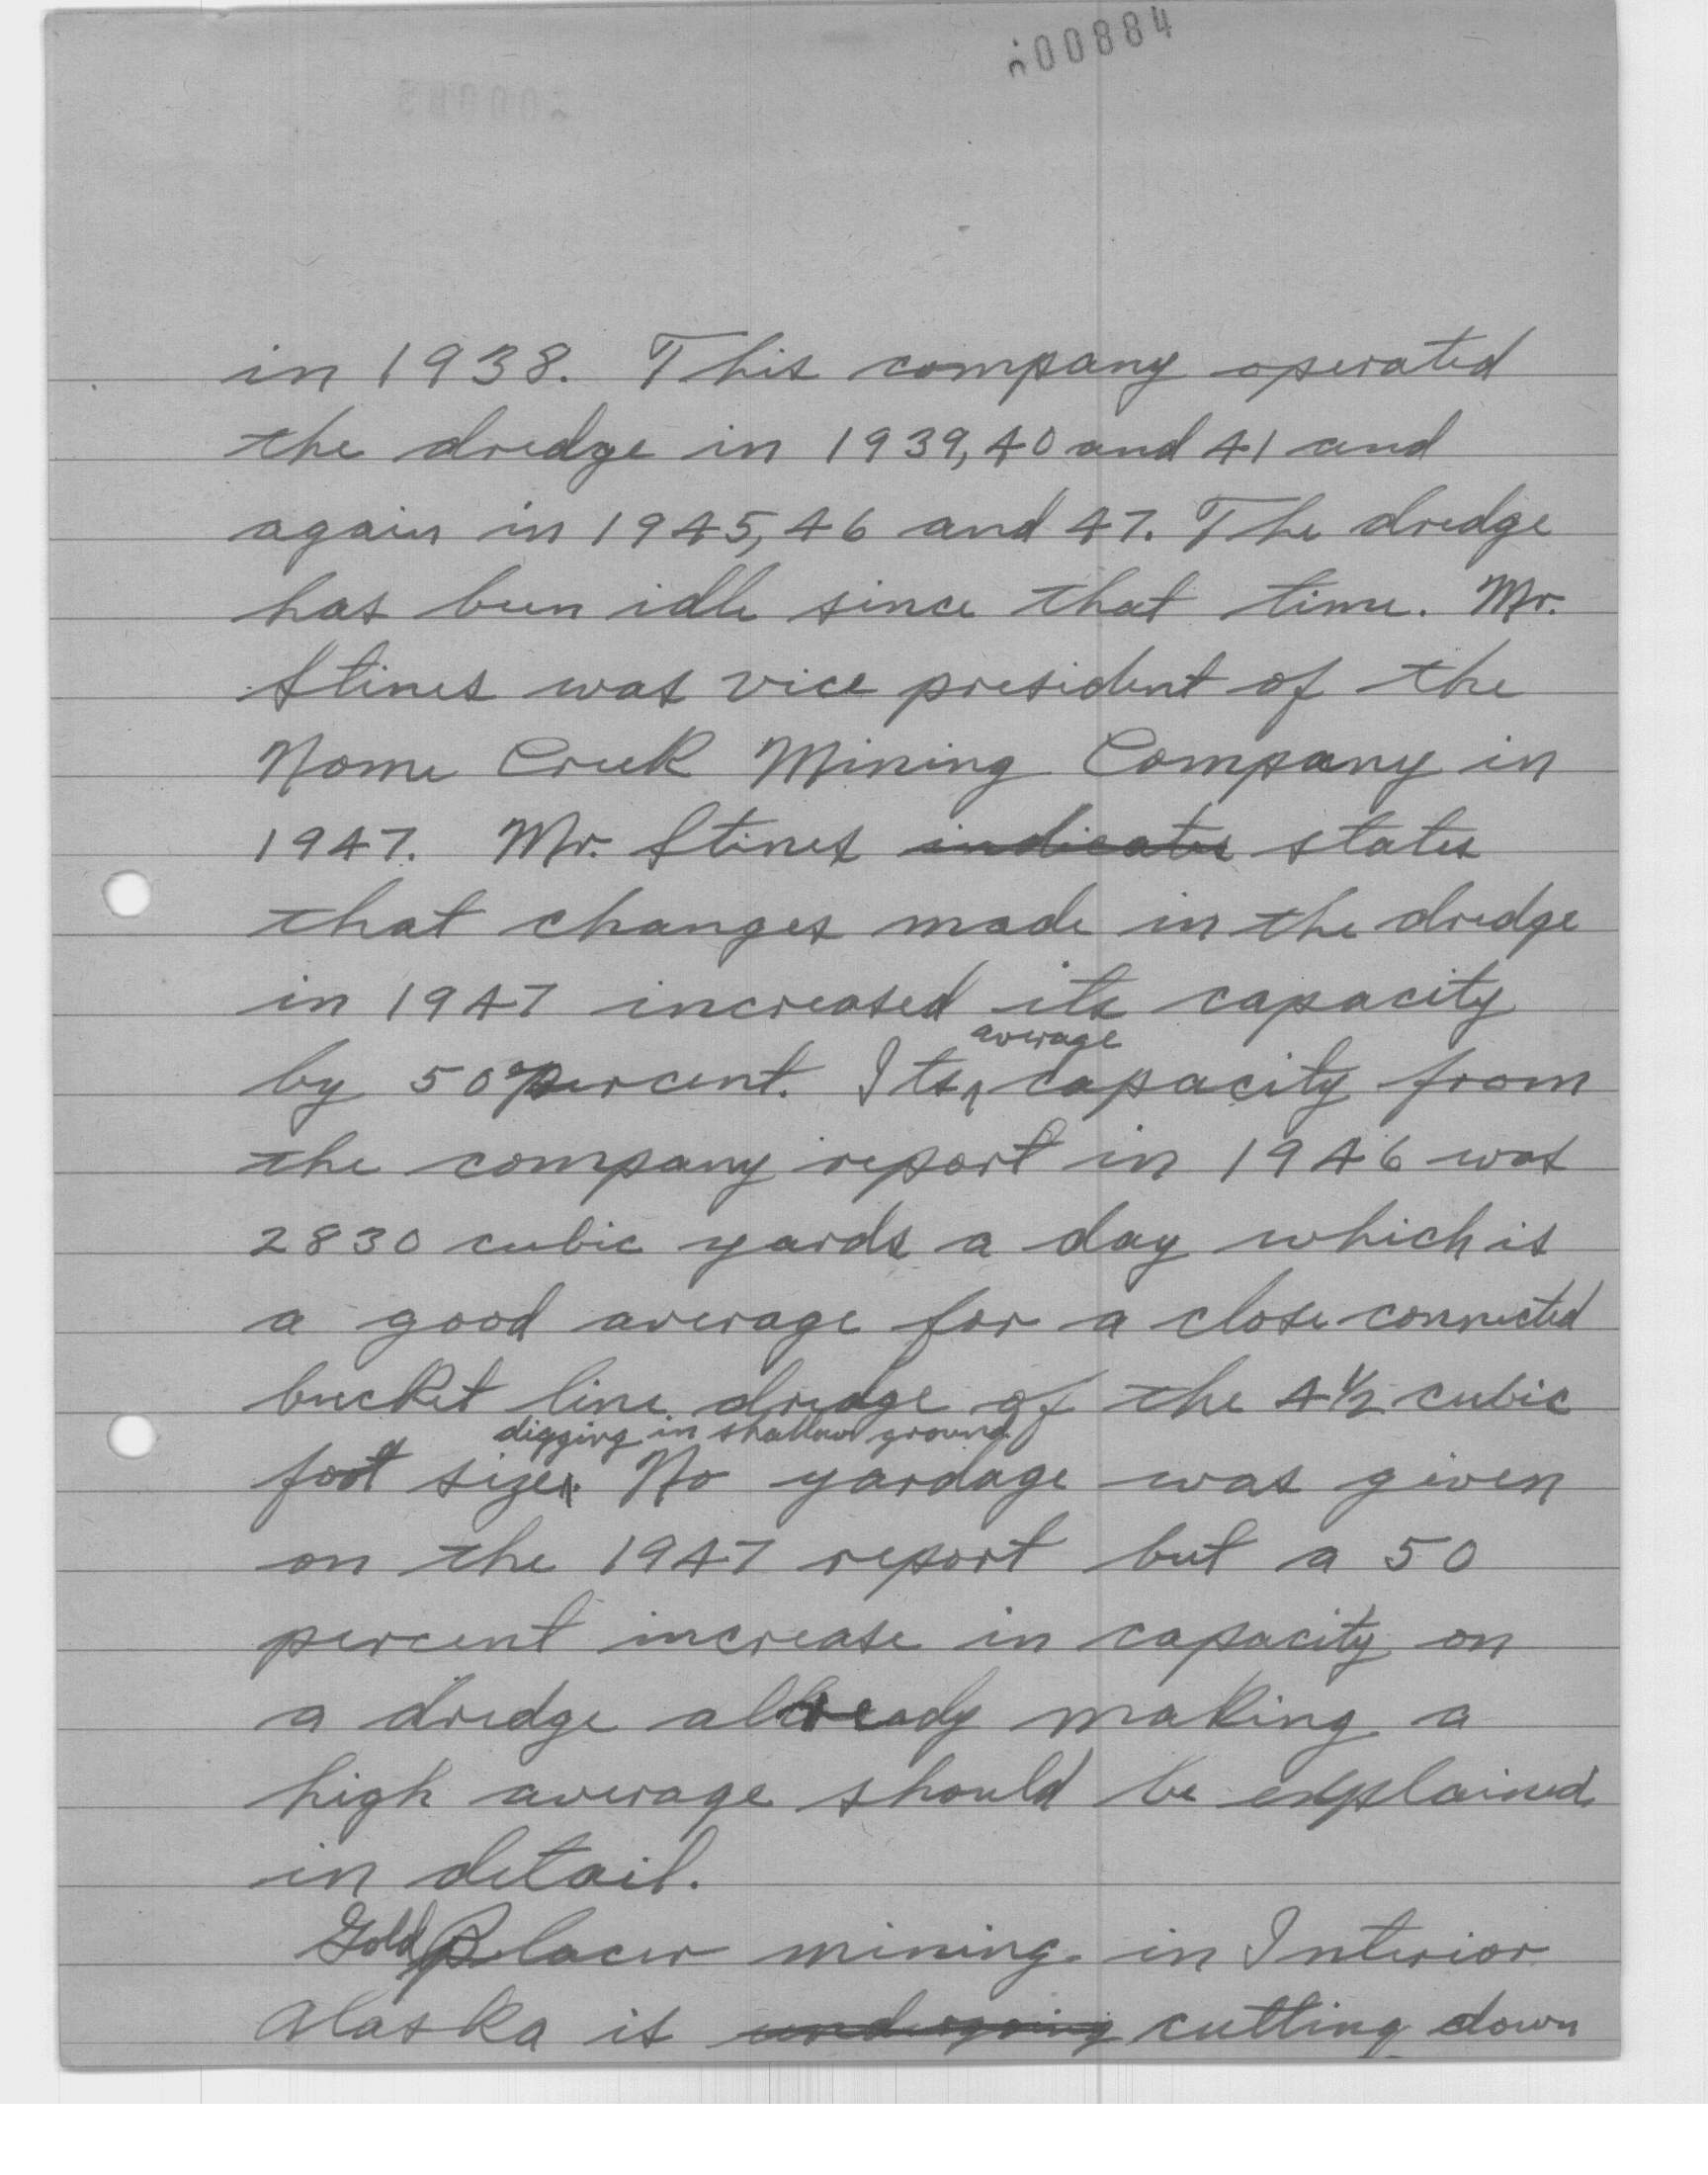 000884
in 1938. This company operated
the dredge in 1939, 40 and 41 and
again in 1945, 46 and 47. The dredge
has been idle since that time. Mr.
Stines was vice president of the
Nome Creek Mining Company in
1947. Mr. Stines indicates states
that changes made in the dredge
in 1947 increased its capacity
average
by 50 percent. Its capacity from
the company report in 1946 was
2830 cubic yards a day which is
a good average for a close connected
bucket line dredge of the 4½ cubic
digging in shallow ground
foot size. No yardage was given
on the 1947 report but a 50
percent increase in capacity on
a dredge already making a
high average should be explained
in detail.
Gold Placer mining in Interior
Alaska is undergoing cutting down